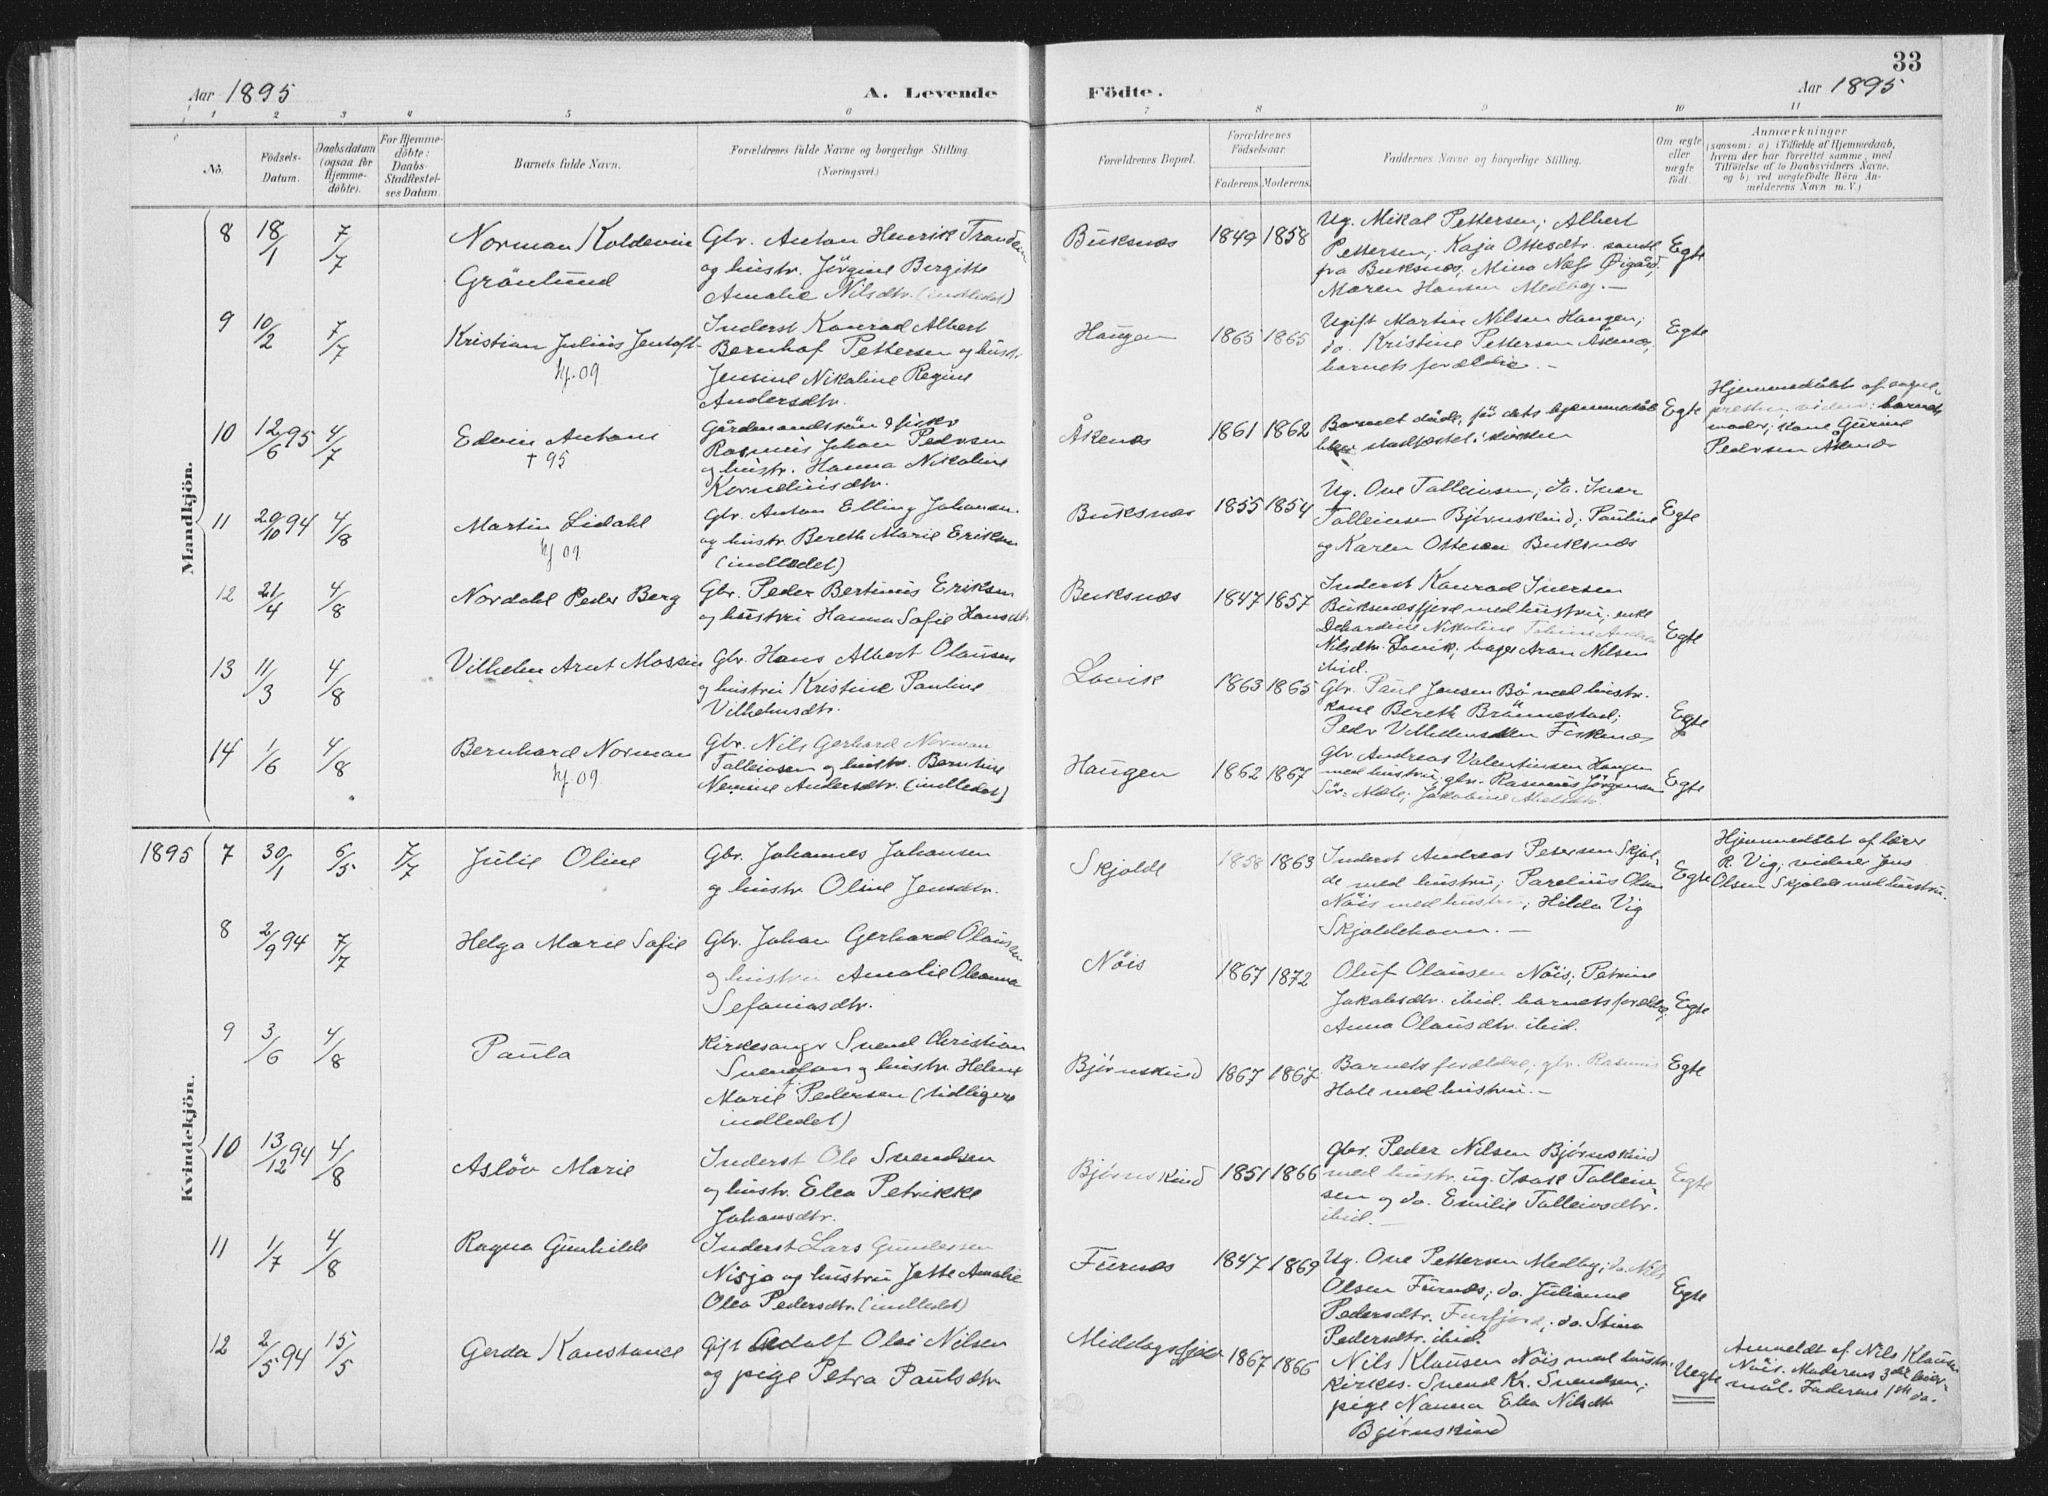 33
Aar 1895
A. Levende
Födte.
Aar 1895
1 2 3 4 5 6 7 8 9 10 11
No.
Födsels-
Datum.
Daabsdatum
(ogsaa for
Hjemme-
döbte).
For Hjemme-
döbte:
Daabs-
Stadfæstel-
ses Datum.
Barnets fulde Navn.
Forældrenes fulde Navne og borgerlige Stilling.
(Næringsvei.)
Forældrenes Bopæl.
Forældrenes
Födselsaar.
Faderens. Moderens.
Faddernes Navne og borgerlige Stilling.
Om ægte
eller
uægte
født.
Anmærkninger
(saasom: a) i Tilfælde af Hjemmedaab,
hvem der har forrettet samme, med
Tilföielse af to Daabsvidners Navne,
og b) ved uægtefödte Börn An-
melderens Navn m. V.)
Mandkjön.
8 18/1 7/7
Norman Koldevin
Grönlund
Gbr. Anton Henrik Trondsen
og hustr. Jörgine Bergitte
Amalie Nilsdtr. (indledet)
Buksnæs 1849 1858
Ug. Mikal Pettersen; Albert
Pettersen; Kaja Ottesdtr. samtl.
fra Buksnæs, Mina Næss Øigård
Maren Hansen Medby. —
Egte
9 10/2 7/7
Kristian Julius Jentoft
kf. 09
Inderst Konrad Albert
Bernhof Pettersen og hustr.
Jensine Nikoline Regine
Andersdtr.
Haugen 1865 1865
Ugift Martin Nilsen Haugen;
do. Kristine Pettersen Åknæs,
barnets forældre. —
Egte
10 12/6 95 4/7
Edvin Antoni
† 95
Gårdmandssön & fisker
Rasmus Johan Pedersen
og hustr. Hanna Nikoline
Korneliusdtr.
Åkenæs 1861 1862
Barnet döde, för dets hjemmedåb
blev stadfæstet i kirken
Egte
Hjemmedöbt af sogne-
presten, vidner: barnets
moder; kone Gurine
Pedersen Åknæs
11 20/10 94 4/8
Martin Lidahl
kf 09
Gbr. Anton Elling Johansen
og hustr. Bereth Marie Eriksen
(indledet)
Buksnæs 1855 1854
Ug. Ove Talleivsen; do. Iver
Talleivsen Bjørnskind; Pauline
og Karen Ottesen Buksnæs
Egte
12 21/4 4/8
Nordahl Peder Berg
Gbr. Peder Bertinus Eriksen
og hustru Hanna Sofie Hansdtr.
Buksnæs 1847 1857
Inderst Konrad Iversen
Buksnæsfjord med hustru; enke
Nilsdtr. Lovik; bager Aron Nilsen
ibid.
Egte
13 11/3 4/8
Vilhelm Arnt Mossin
Gbr. Hans Albert Olausen
og hustru Kristine Pauline
Vilhelmsdtr.
Lovik 1863 1865
Gbr. Paul Jensen Bö med hustr.
kone Bereth Brönnestad;
Peder Vilhelmsen Fiskenæs
Egte
14 1/6 4/8
Bernhard Norman
kf. 09
Gbr. Nils Gerhard Norman
Talleivsen og hustr. Berntine
Andersdtr. (indledet)
Haugen 1862 1867
Gbr. Andreas Valentinsen Haugen
med hustru, gbr. Rasmus Jörgensen
Egte
Kvindekjön.
1895 7 30/1 6/5 7/7
Julie Oline
Gbr. Johannes Johansen
og hustr. Oline Jensdtr.
Skjolde 1858 1863
Inderst Andreas Petersen Skjol-
de med hustru; Parelius Olsen
Nöis med hustru; Hilda Vig
Skjoldehavn. —
Egte
Hjemmedöbt af lærer
R. Vig; vidner Jens
Olsen Skjolde med hustru.
8 2/9 94 7/7
Helga Marie Sofie
Gbr. Johan Gerhard Olausen
og hustru Amalie Oleanna
Sefaniasdtr.
Nöis 1867 1872
Oluf Olausen Nöis; Petrine
Jakobsdtr. ibid. barnets forældre,
Anna Olausdtr. ibid.
Egte
9 3/6 4/8
Paula
Kirkesanger Svend Christian
Svendsen og hustr. Helene
Marie Pedersen (tidligere
indledet)
Bjørnskind 1867 1867
Barnets forældre; gbr. Rasmus
Hole med hustru. —
Egte
10 13/12 94 4/8
Aslöv Marie
Inderst Ole Svendsen
og hustr. Elea Petrikke
Johansdtr.
Bjørnskind 1851 1866
Gbr. Peder Nilsen Bjørnskind
med hustr. ug. Isak Talleiv-
sen og do. Emilie Talleivsdtr.
ibid. —
Egte
11 1/7 4/8
Ragna Gunhilde
Inderst Lars Gundersen
Nisja og hustru Jette Amalie
Olea Pedersdtr. (indledet)
Furnæs 1847 1869
Ug. Ove Pettersen Medby; do. Nils
Olsen Furnæs; do. Julianne
Pedersdtr. Furfjord; do. Stina
Pedersdtr. ibid.
Egte
12 2/5 94 15/5
Gerda Konstance
Gift Adolf Olai Nilsen
og pige Petra Paulsdtr.
Middagsfjeld 1867 1866
Nils Klausen Nöis med hustr.
Kirkes. Svend Kr. Svendsen;
pige Nanna Elea Nilsdtr.
Bjørnskind
Uegte
Anmeldt af Nils Klausen
Nöis. Moderens 3die leier-
mål. Faderens 1ste do.